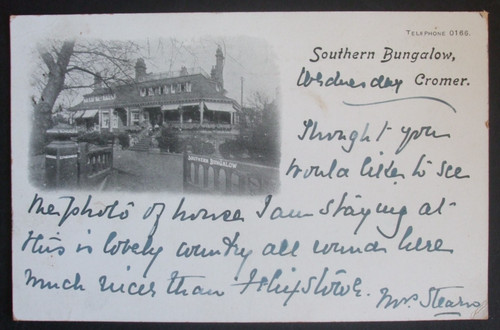 TELEPHONE 0166.
Southern Bungalow,
Cromer.
Wednesday
SOUTHERN BUNGALOW
Thought you
would like to see
the photo of house I am staying at
this is lovely country all round here
much nicer than Felixstowe. Mrs Stearn